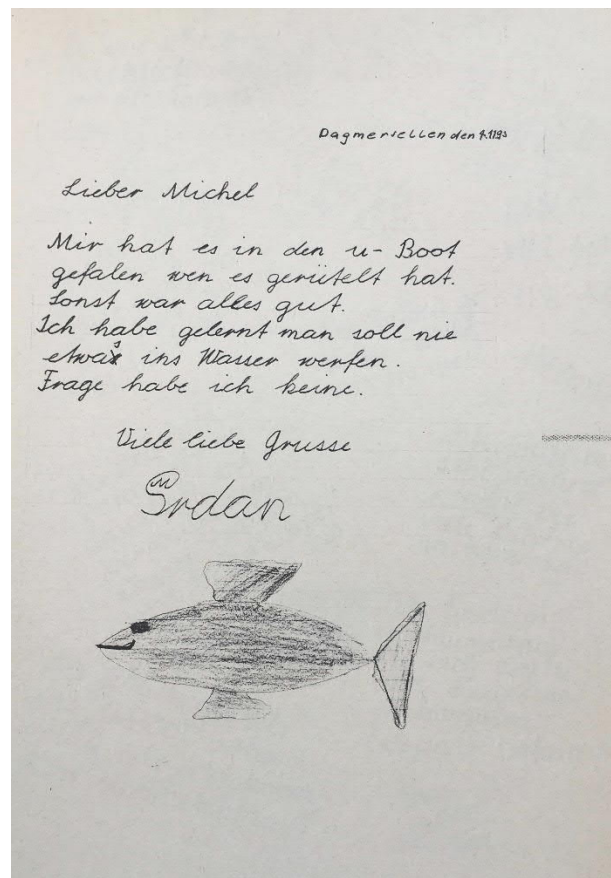 Dagmersellen den 4.11.93
Lieber Michel
Mir hat es in den u-Boot
gefalen wen es gerütelt hat.
Sonst war alles gut.
Ich habe gelernt man soll nie
etwas ins Wasser werfen.
Frage habe ich keine.
Viele liebe Grusse
Srdan